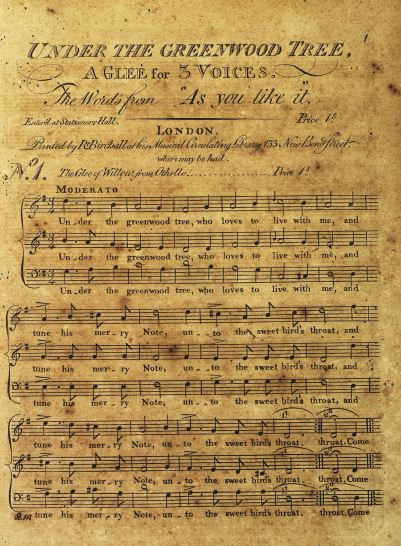 1
UNDER THE GREENWOOD TREE.
A GLEE for 3 VOICES.
The Words from "As you like it".
Enter'd at Stationers Hall. Price 1s
LONDON.
Printed by Rt Birchall at his Musical Circulating Library 133 New Bond Street
where may be had
No. 1. The Glee of Willow, from Othello Price 1s
MODERATO
Un_der the greenwood tree, who loves to live with me, and
Un_der the greenwood tree, who loves to live with me, and
Un_der the greenwood tree, who loves to live with me, and
tune his mer_ry Note, un_to the sweet bird's throat, and
tune his mer_ry Note, un_to the sweet bird's throat, and
tune his mer_ry Note, un_to the sweet bird's throat, and
tune his mer_ry Note, un_to the sweet bird's throat. throat. Come
tune his mer_ry Note, un_to the sweet bird's throat. throat. Come
tune his mer_ry Note, un_to the sweet bird's throat. throat. Come